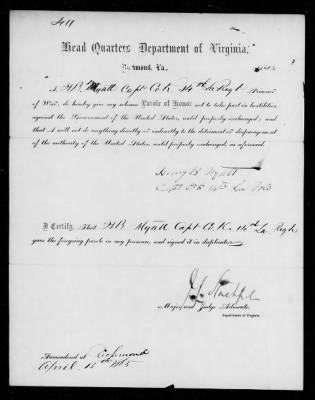 Head Quarters Department of Virginia,
Richmond, Va.,
I, H.B. Myatt Capt Co. K. 14th La Regt Prisoner
of War, do hereby give my solemn Parole of Honor not to take part in hostilities
against the Government of the United States, until properly exchanged; and
that I will not do anything directly or indirectly to the detriment or disparagement
of the authority of the United States, until properly exchanged, as aforesaid.
Henry B. Myatt
Capt Co K 14th La
I Certify, That H B Myatt Capt Co. K. 14th La. Regt
gave the foregoing parole in my presence, and signed it in duplicate.
Major and Judge Advocate,
Department of Virginia.
Surrendered at Richmond
April 15th 1865